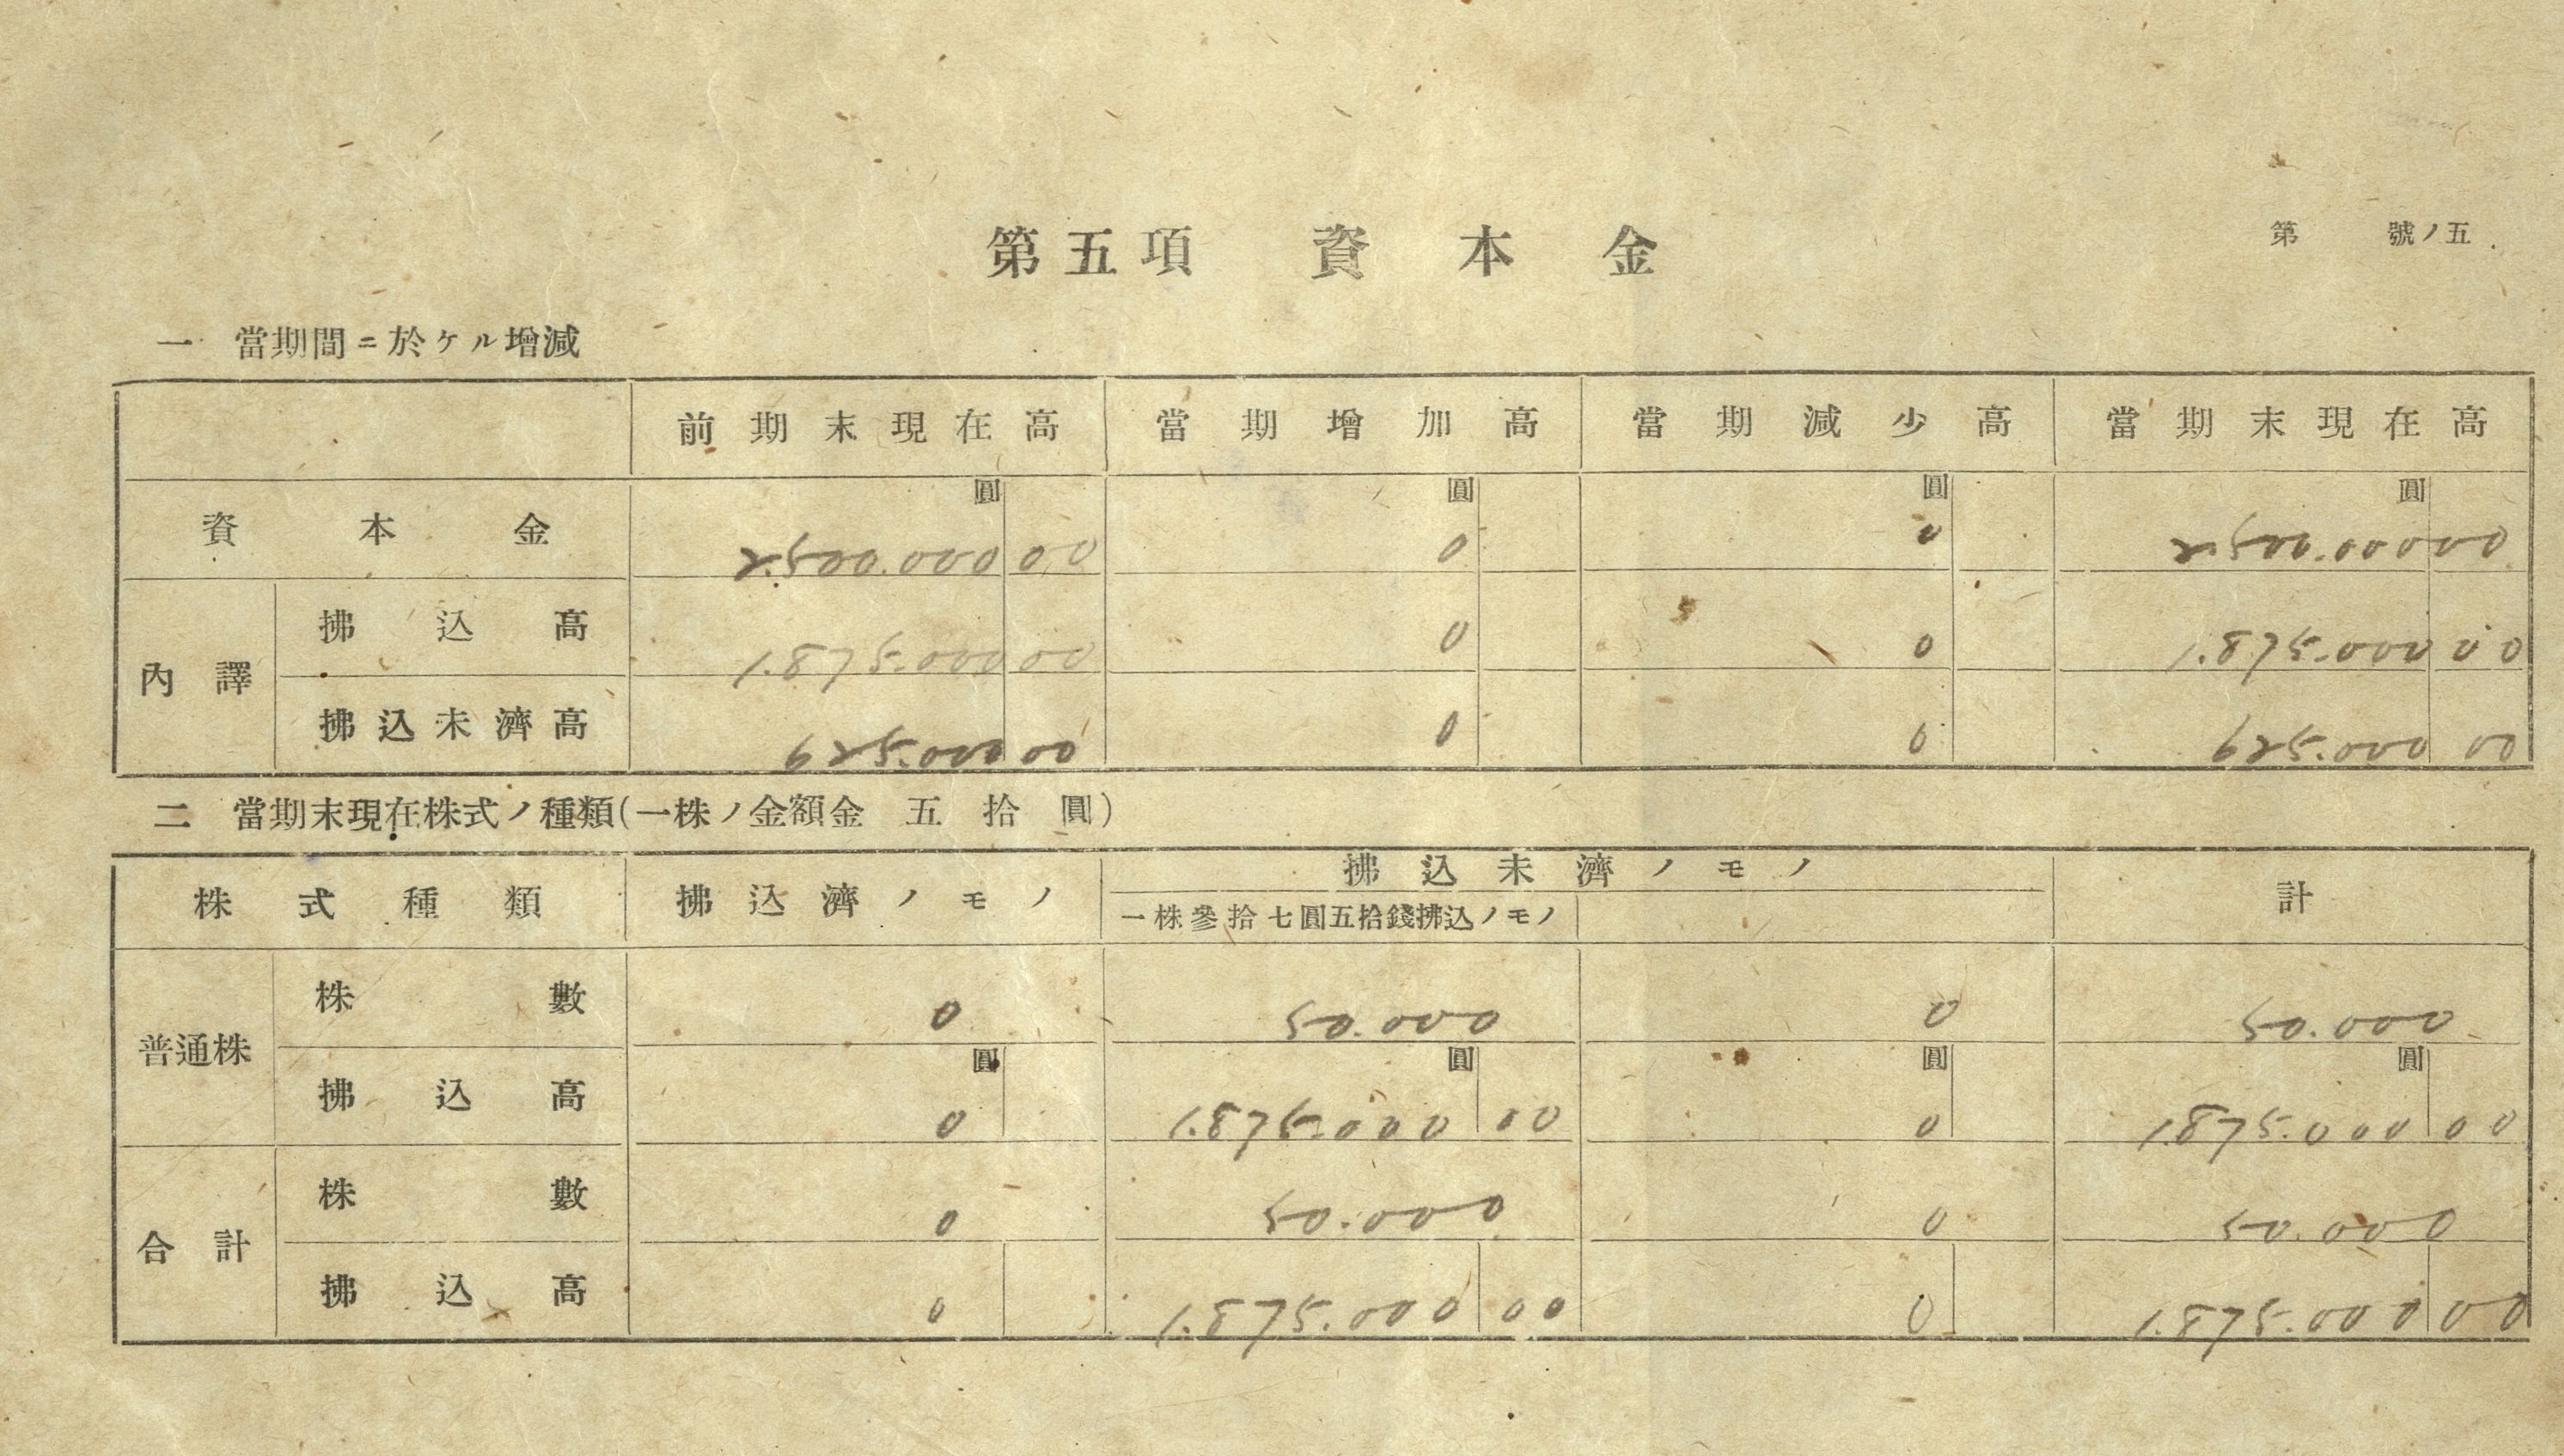 第　號ノ五
第五項　資本金
一　當期間ニ於ケル增減
前期末現在高　當期增加高　當期減少高　當期末現在高
圓　圓　圓　圓
資本金　2.500.000 00　0　0　2.500.000 00
內譯
拂込高　1.875.000 00　0　0　1.875.000 00
拂込未濟高　625.000 00　0　0　625.000 00
二　當期末現在株式ノ種類(一株ノ金額金　五拾圓)
株式種類　拂込濟ノモノ　拂込未濟ノモノ　計
一株參拾七圓五拾錢拂込ノモノ
普通株
株數　0　50.000　0　50.000
圓　圓　圓　圓
拂込高　0　1.875.000 00　0　1.875.000 00
合計
株數　0　50.000　0　50.000
拂込高　0　1.875.000 00　0　1.875.000 00